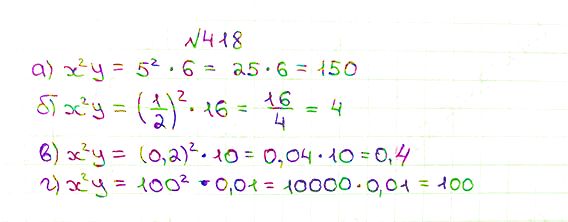 №418
а) x²y = 5² · 6 = 25 · 6 = 150
б) x²y = (1/2)² · 16 = 16/4 = 4
в) x²y = (0,2)² · 10 = 0,04 · 10 = 0,4
г) x²y = 100² · 0,01 = 10000 · 0,01 = 100